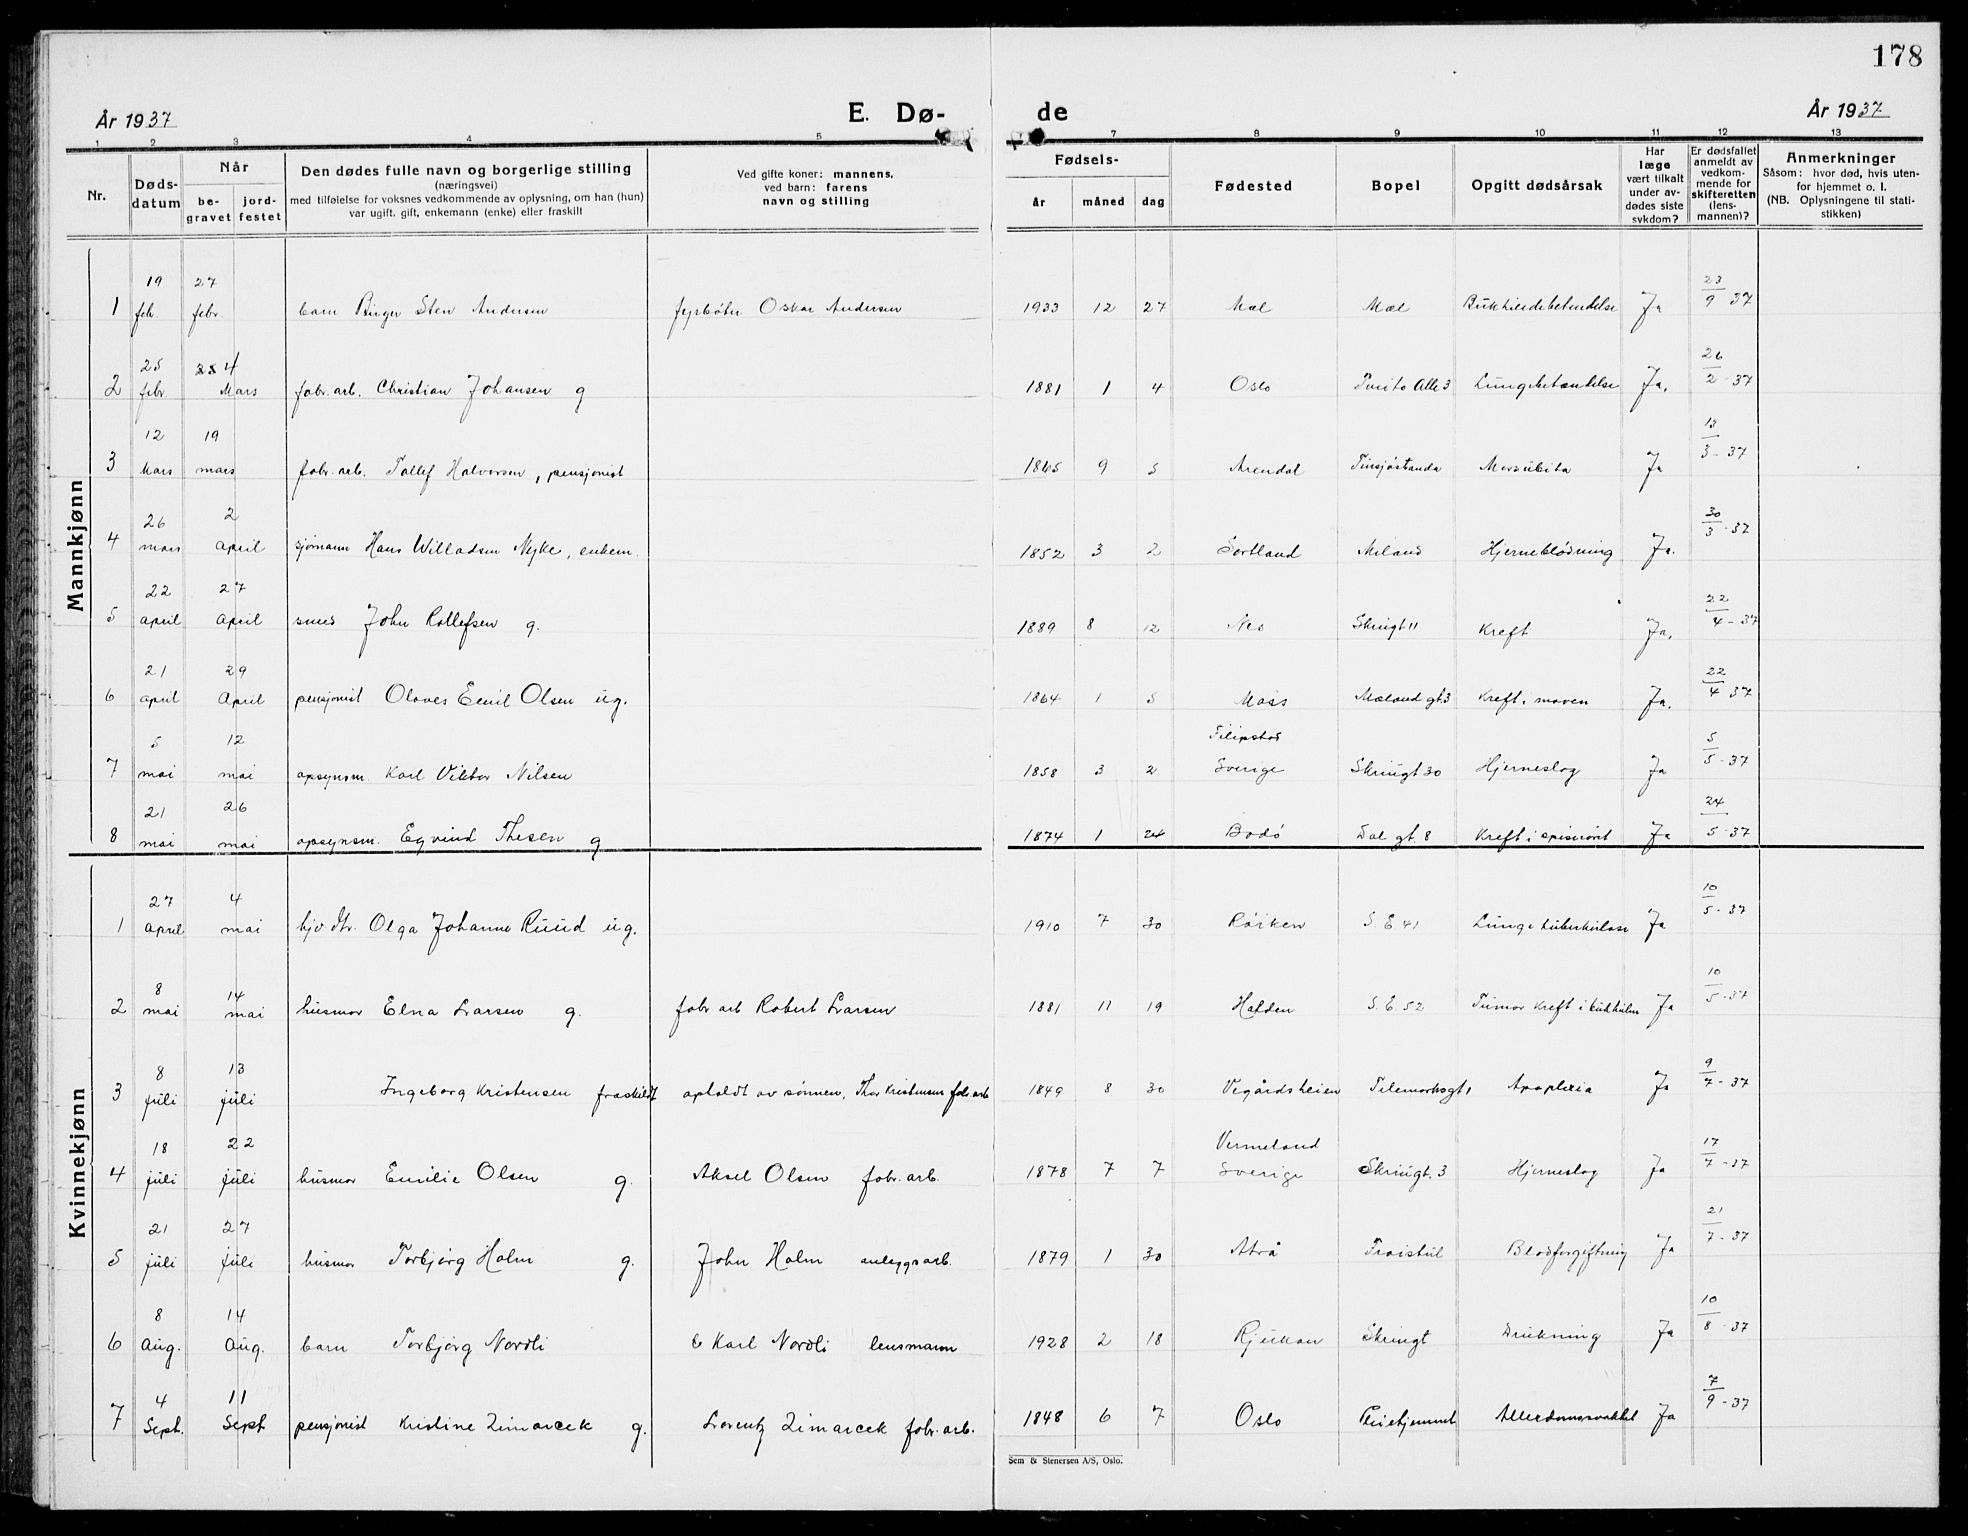 178
År 1937 E. Dø- de År 1937
1 2 3 4 5 7 8 9 10 11 12 13
Nr. Døds-datum Når be-gravet jord-festet
Den dødes fulle navn og borgerlige stilling
(næringsvei)
med tilføielse for voksnes vedkommende av oplysning, om han (hun)
var ugift, gift, enkemann (enke) eller fraskilt
Ved gifte koner: mannens,
ved barn: farens
navn og stilling
Fødsels- år måned dag
Fødested
Bopel
Opgitt dødsårsak
Har læge vært tilkalt under av-dødes siste sykdom?
Er dødsfallet anmeldt av vedkom-mende for skifteretten (lens-mannen)?
Anmerkninger
Såsom: hvor død, hvis uten-
for hjemmet o. l.
(NB. Oplysningene til stati-
stikken)
Mannkjønn
1 19 feb. 27 febr. barn Birger Sten Andersen fyrbøter Oskar Andersen 1933 12 27 Mæl Mæl Bukhindebetendelse Ja 23/9 37
2 25 febr. 4 Mars fabr. arb. Christian Johansen g 1881 1 4 Oslo Tveito Alle 3 Lungebetændelse Ja. 26/2-37
3 12 Mars 19 mars fabr. arb. Tollef Halvorsen, pensjonist 1865 9 5 Arendal Tinsjøstranda Ja 13/3-37
4 26 mars 2 april sjømann Hans Willadsen Nyke, enkem. 1852 3 2 Sortland Miland Hjerneblødning Ja. 30/3-37
5 22 april 27 April smed John Rollefsen g. 1889 8 12 Nes Skriugt 11 Kreft Ja. 22/4-37
6 21 april 29 April pensjonist Olaves Emil Olsen ug. 1864 1 5 Moss Mælandgt. 3 Kreft i maven Ja. 22/4 37
7 5 mai 12 mai opsynsm. Karl Viktor Nilsen 1858 3 2 Filipstad Sverige Skriugt 30 Hjerneslag Ja 5/5-37
8 21 mai 26 mai opsynsm. Eyvind Thesen g 1874 1 24 Bodø Dal gt. 8 Kreft i spiserøret Ja 24/5-37
Kvinnekjønn
1 27 April 4 mai hjv. dtr. Olga Johanne Ruud ug. 1910 7 30 Røiken S. E. 41 Lungetuberkulose Ja 10/5-37
2 8 mai 14 mai husmor Elna Larsen g. fabr arb Robert Larsen 1881 11 19 Halden S. E. 52 Tumor Kreft i bukhulen Ja 10/5-37
3 8 juli 13 juli Ingeborg Kristensen fraskildt opholdt av sønnen, Thor Kristensen fabr. arb 1849 8 30 Vegårdsheien Telemarksgt 1 Apoplexia Ja 9/7-37
4 18 juli 22 juli husmor Emilie Olsen g. Aksel Olsen fabr. arb. 1878 7 7 Vermeland Sverige Skriugt. 3 Hjerneslag Ja 17/7-37
5 21 juli 27 juli husmor Torbjørg Holm g. John Holm anleggsarb. 1879 1 30 Atrå Frøistul Blodforgiftning Ja 21/7-37
6 8 Aug. 14 Aug. barn Torbjørg Nordli Karl Nordli lensmann 1928 2 18 Rjukan Skriugt Drukning Ja 10/8-37
7 4 Sept. 11 Sept. pensjonist Kristine Zimarcek g. Lorentz Zimarcek fabr. arb. 1848 6 7 Oslo Pleiehjemmet Alderdomssvakhet Ja 7/9-37
Sem & Stenersen A/S, Oslo.